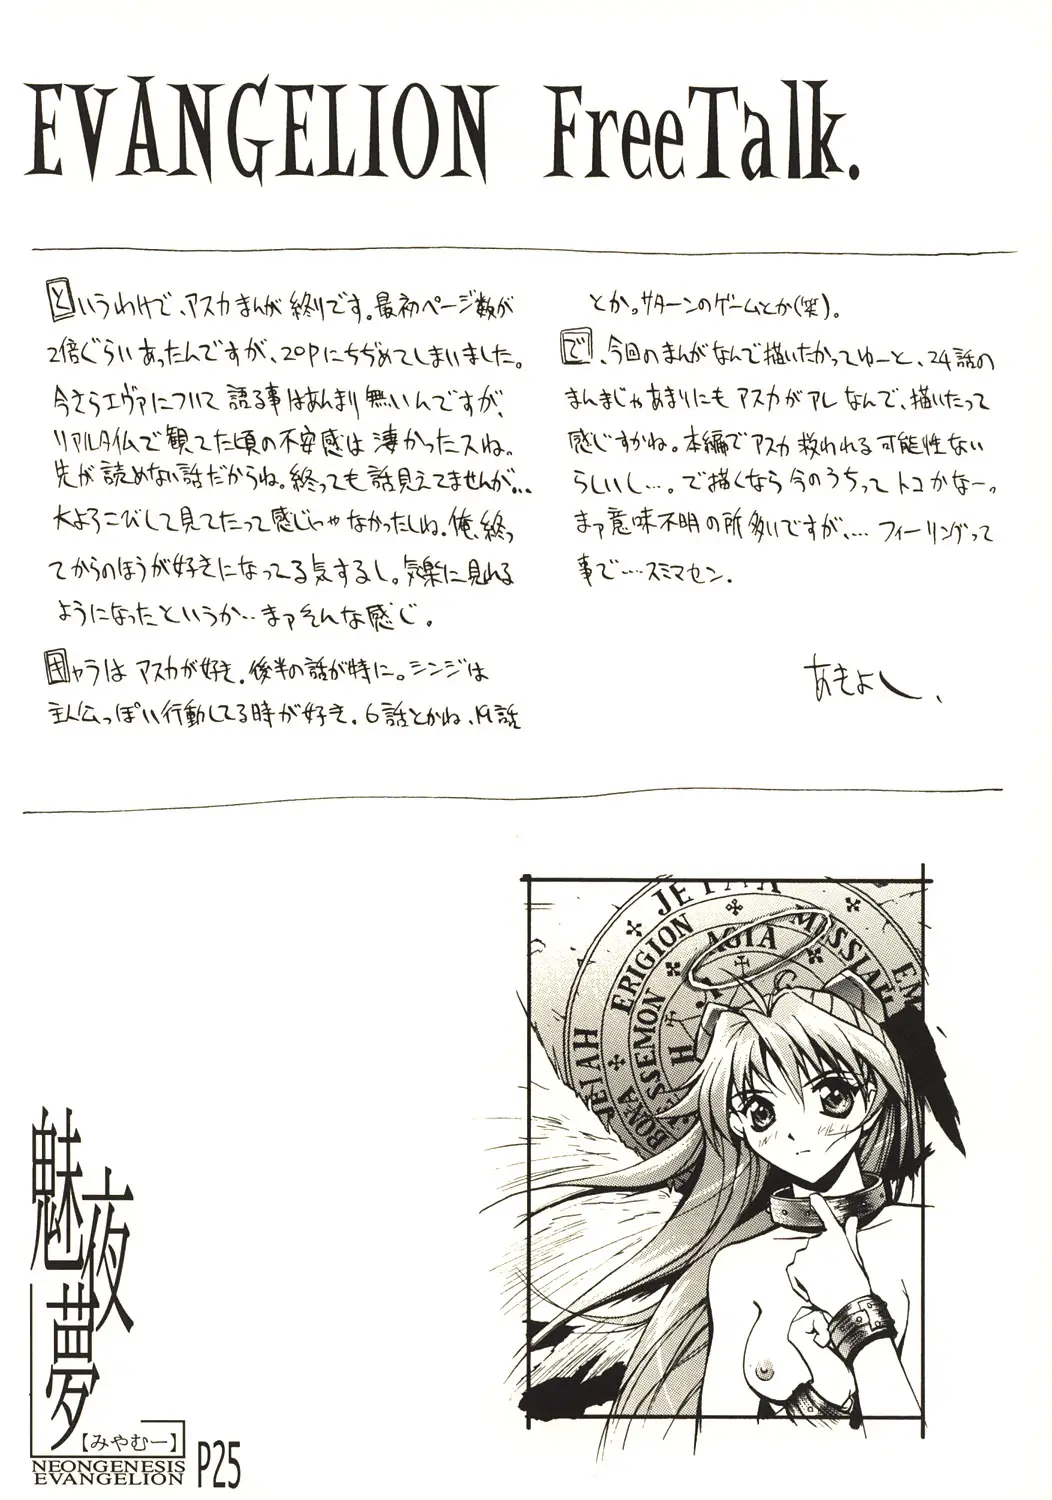 EVANGELION FreeTalk.
というわけで、アスカまんが終りです。最初ページ数が
2倍ぐらいあったんですが、20Pにちぢめてしまいました。
今さらエヴァについて語る事はあんまり無いんですが、
リアルタイムで観てた頃の不安感は凄かったスね。
先が読めない話だからね。終っても話見えてませんが…
大よろこびして見てたって感じじゃなかったしね。俺、終っ
てからのほうが好きになってる気するし。気楽に見れる
ようになったというか…まァそんな感じ。
キャラはアスカが好き。後半の話が特に。シンジは
主人公っぽい行動してる時が好き。6話とかね、19話
とかっサターンのゲームとか(笑)。
で、今回のまんがなんで描いたかってゆーと、24話の
まんまじゃあまりにもアスカがアレなんで、描いたって
感じすかね。本編でアスカ救われる可能性ない
らしいし…。で描くなら今のうちってトコかなーっ
まァ意味不明の所多いですが、…フィーリングって
事で……スミマセン.
あきよし、
JE
ERIGION
AGIA
MESSIAH
EM
JEIAH
SSEMON
BONA
H
G
魅夜夢
【みやむー】
NEONGENESIS
EVANGELION
P25